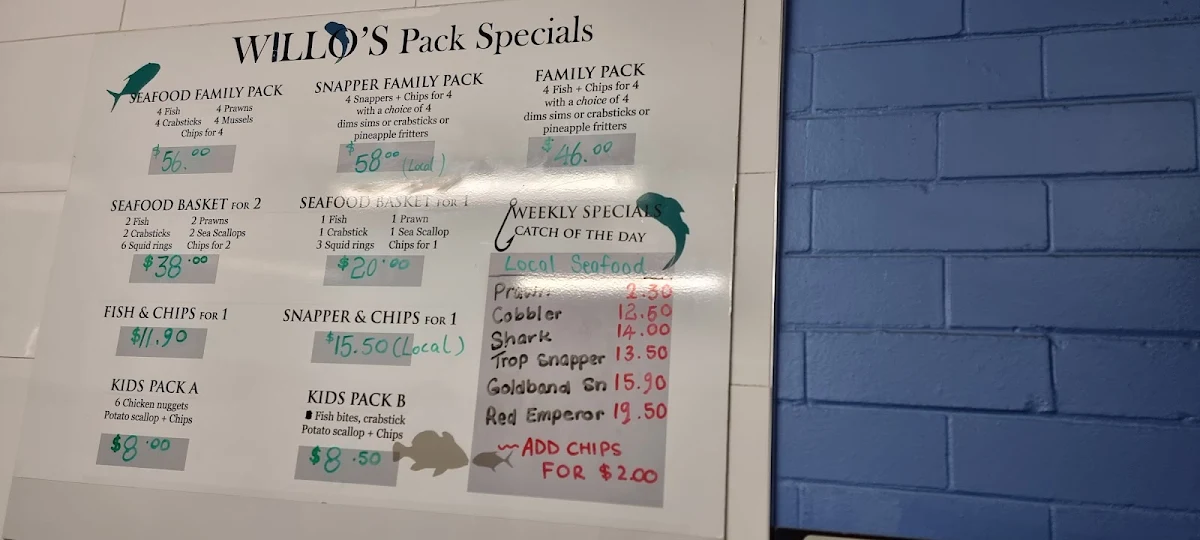 WILLO'S Pack Specials
SEAFOOD FAMILY PACK
4 Fish 4 Prawns
4 Crabsticks 4 Mussels
Chips for 4
$56.00
SNAPPER FAMILY PACK
4 Snappers + Chips for 4
with a choice of 4
dims sims or crabsticks or
pineapple fritters
$58.00 (Local)
FAMILY PACK
4 Fish + Chips for 4
with a choice of 4
dims sims or crabsticks or
pineapple fritters
$46.00
SEAFOOD BASKET FOR 2
2 Fish 2 Prawns
2 Crabsticks 2 Sea Scallops
6 Squid rings Chips for 2
$38.00
SEAFOOD BASKET FOR 1
1 Fish 1 Prawn
1 Crabstick 1 Sea Scallop
3 Squid rings Chips for 1
$20.00
FISH & CHIPS FOR 1
$11.90
SNAPPER & CHIPS FOR 1
$15.50 (Local)
KIDS PACK A
6 Chicken nuggets
Potato scallop + Chips
$8.00
KIDS PACK B
Fish bites, crabstick
Potato scallop + Chips
$8.50
WEEKLY SPECIALS
CATCH OF THE DAY
Local Seafood
Prawn 2.30
Cobbler 12.50
Shark 14.00
Trop Snapper 13.50
Goldband Sn 15.90
Red Emperor 19.50
ADD CHIPS
FOR $2.00